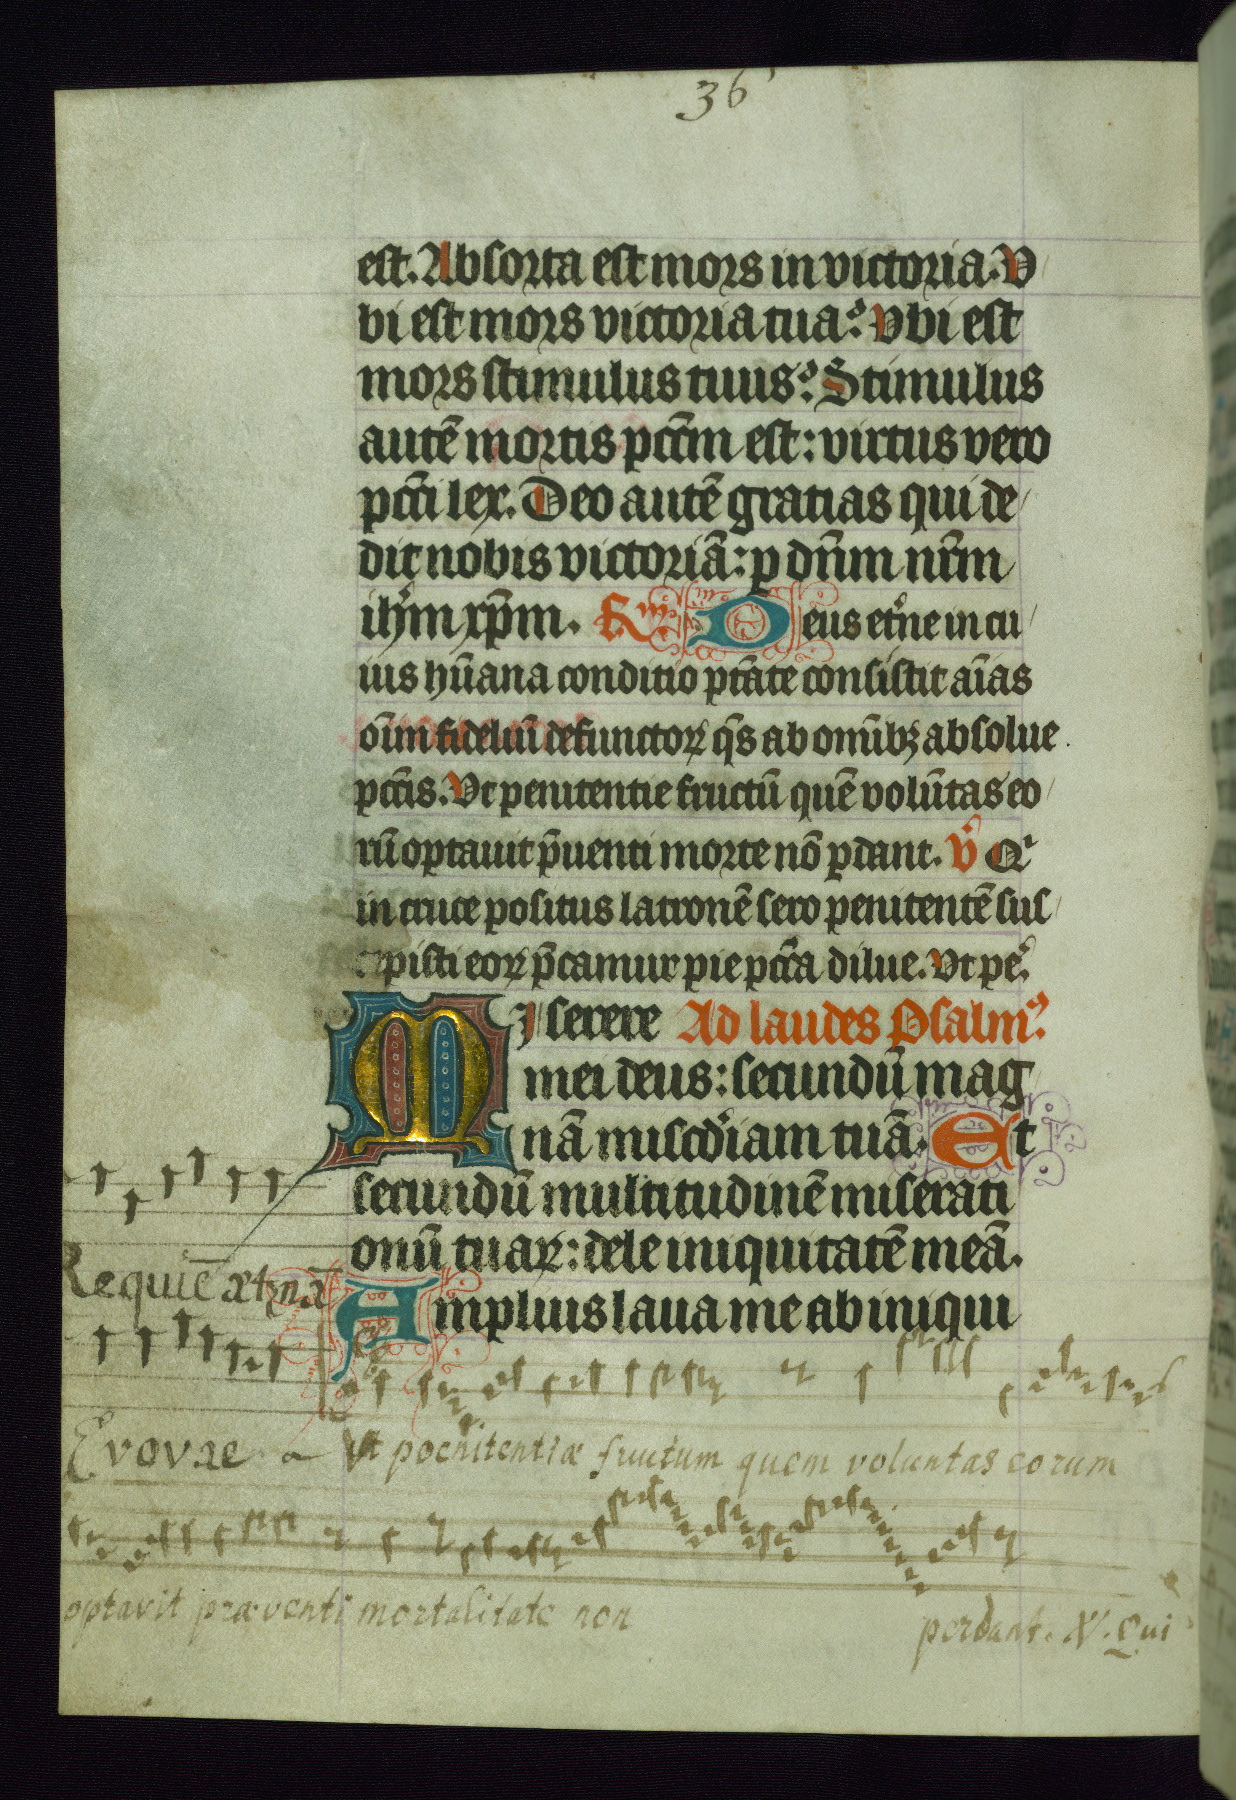 36
est. Absorta est mors in victoria. V
bi est mors victoria tua? Vbi est
mors stimulus tuus? Stimulus
autē mortis pctm̄ est: virtus vero
pcc̄i lex. Deo autē gratias qui de
dit nobis victoriā: p dn̄m nr̄m
ihm̄ xp̄m. Deus et'ne in cu
ius hūana conditio ptāte consistit aīas
oīm fidelıū defunctoꝝ q̄s ab omībꝫ absolue
pctīs. Vt penitentie fructū quē volūtas eo
rū optauit p̄uenti morte nō ꝑdant. V̄ Qͥ
in cruce positus latronē sero penitentē sus
cepisti eoꝝ p̄camur pie pctā dilue. Vt pe.
Miserere Ad laudes Psalmꝰ.
mei deus: secundū mag
nā miscd̄iam tuā. Et
secundū multitudinē miserati
onū tuaꝝ: dele iniquitatē meā.
Amplius laua me ab iniqui
Requiē æt'nā
Evovae Ut poenitentiæ fructum quem voluntas eorum
optavit præventi mortalitate non perdant. V. Qui